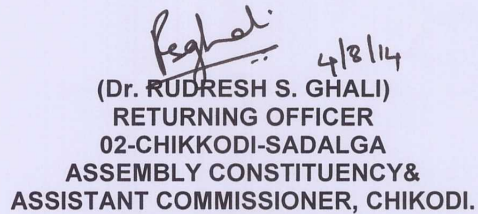 4/8/14
(Dr. RUDRESH S. GHALI)
RETURNING OFFICER
02-CHIKKODI-SADALGA
ASSEMBLY CONSTITUENCY&
ASSISTANT COMMISSIONER, CHIKODI.